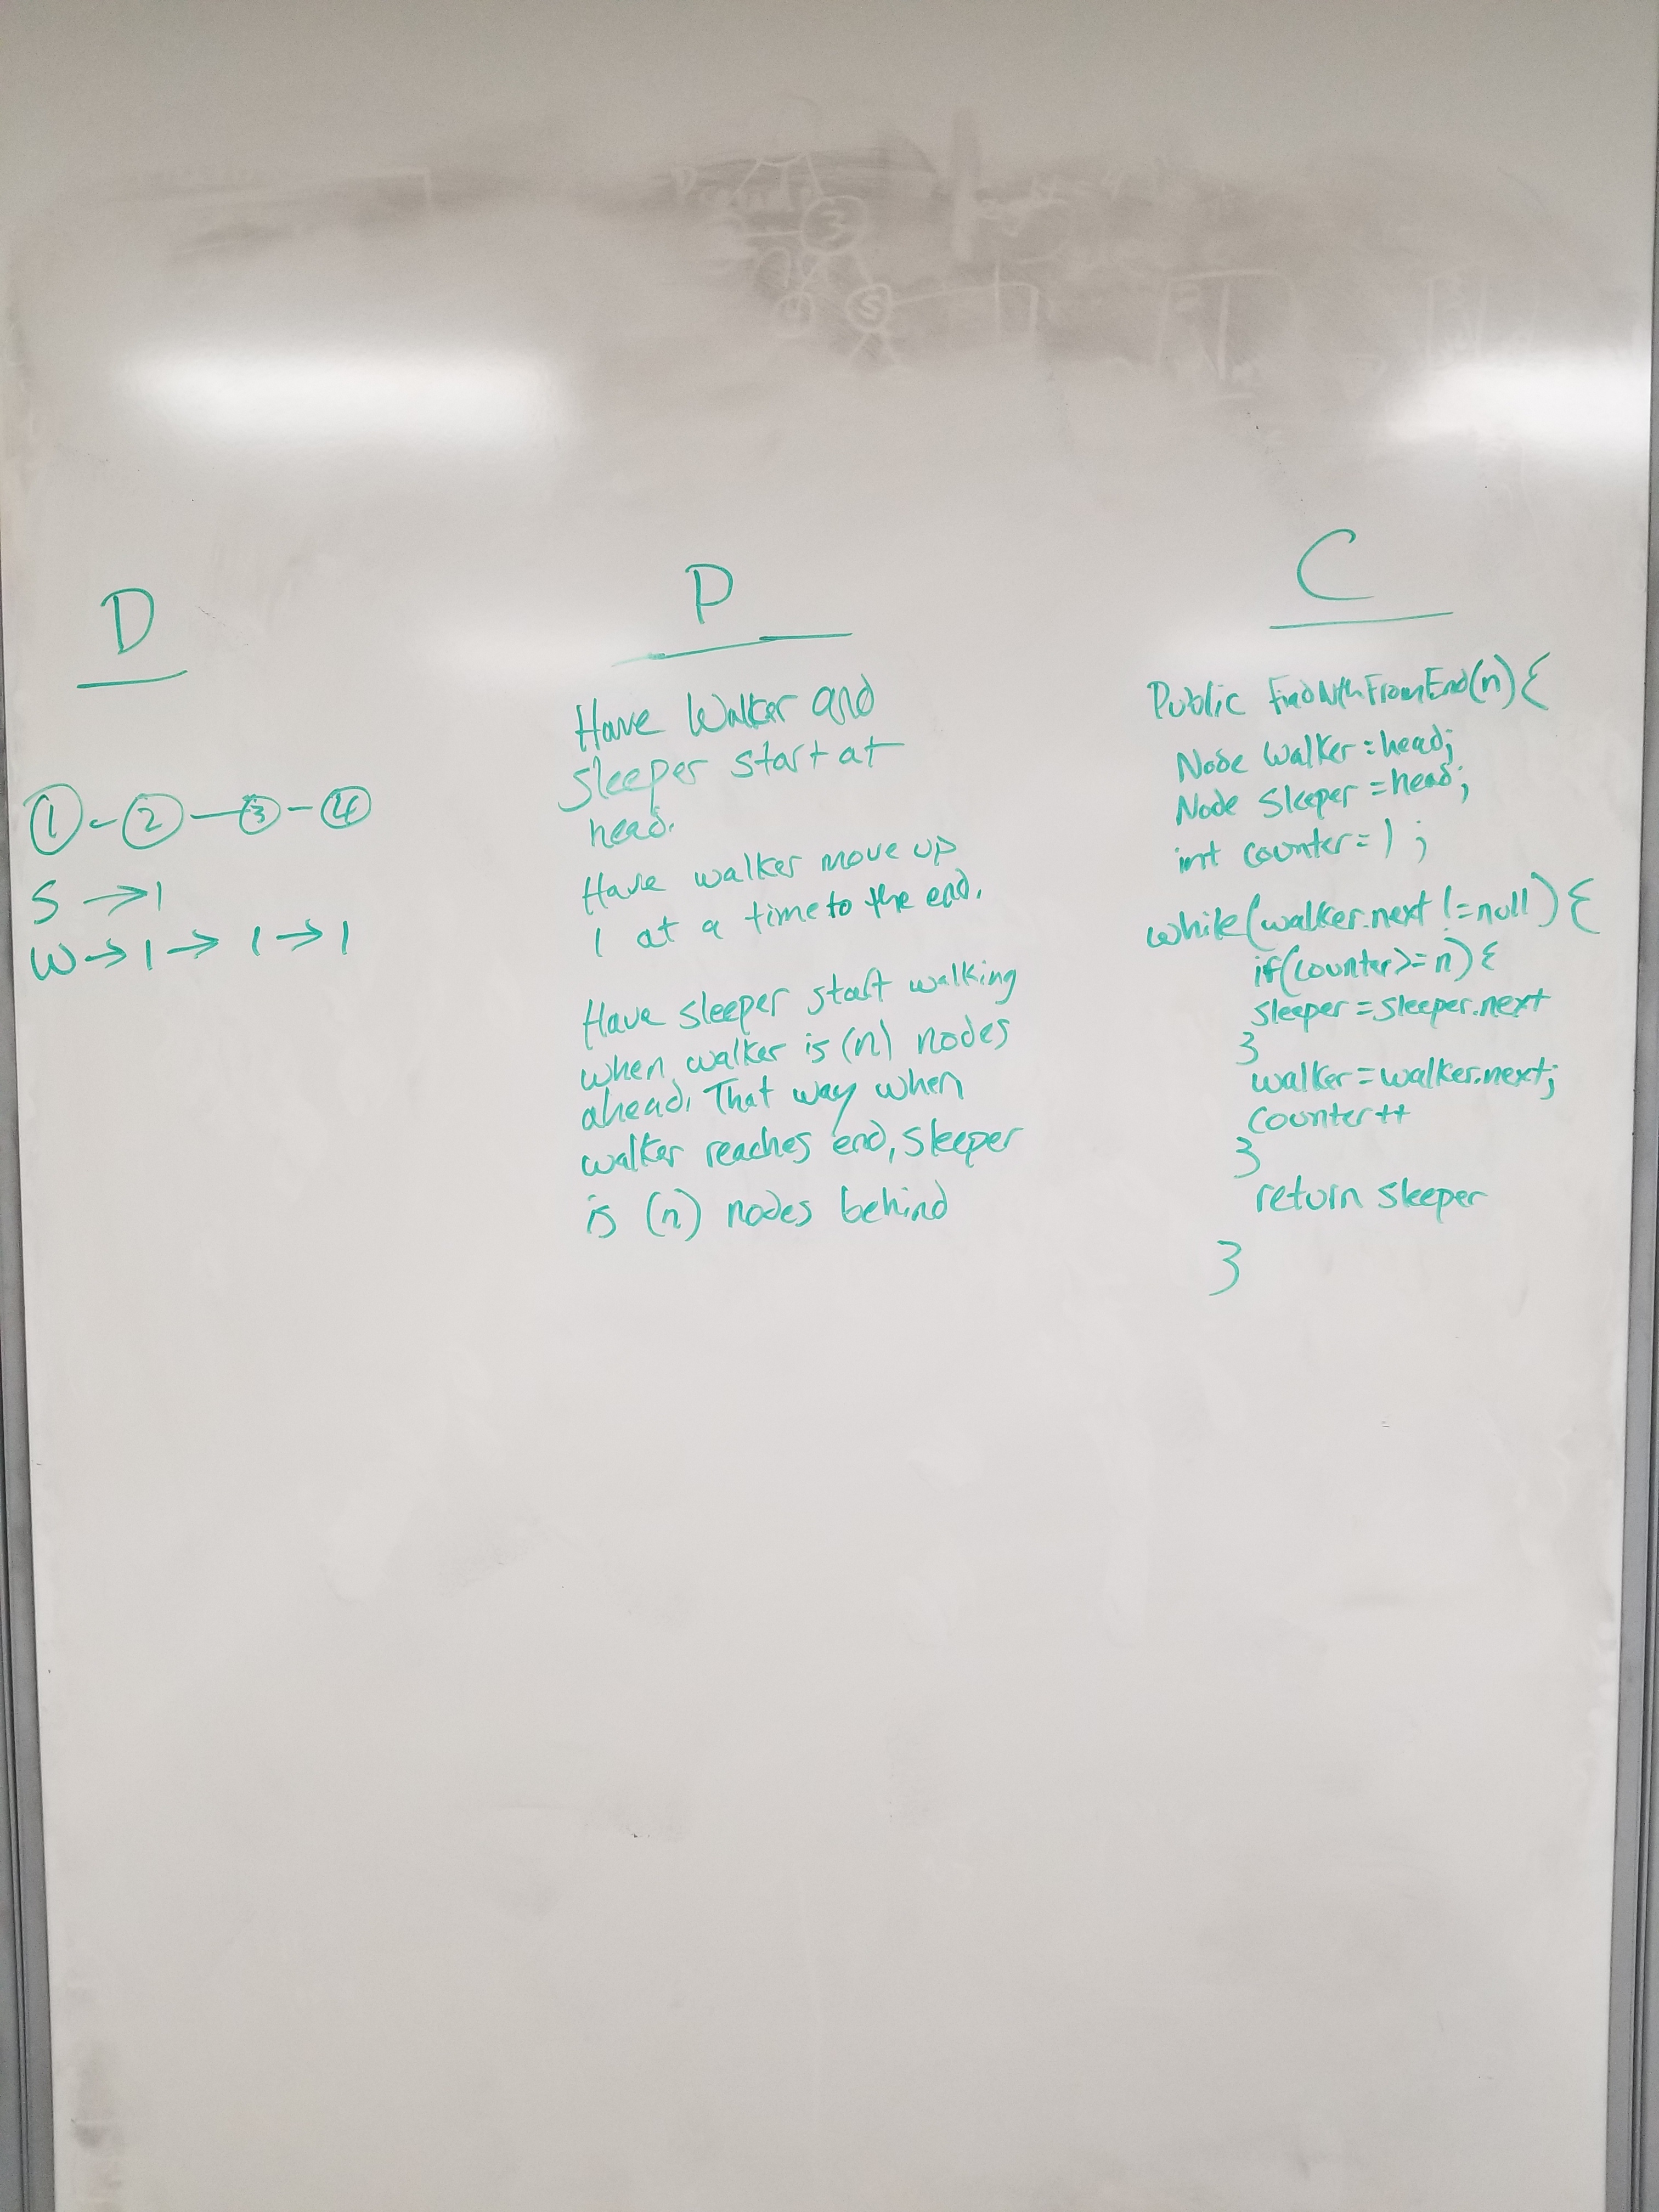 D
1 - 2 - 3 - 4
S → 1
W → 1 → 1 → 1
P
Have Walker and
sleeper start at
head.
Have walker move up
1 at a time to the end.
Have sleeper start walking
when walker is (n) nodes
ahead. That way when
walker reaches end, sleeper
is (n) nodes behind
C
Public findNthFromEnd(n){
Node Walker = head;
Node Sleeper = head;
int counter = 1;
while(walker.next != null){
if(counter >= n){
sleeper = sleeper.next
}
walker = walker.next;
counter++
}
return sleeper
}
3
5